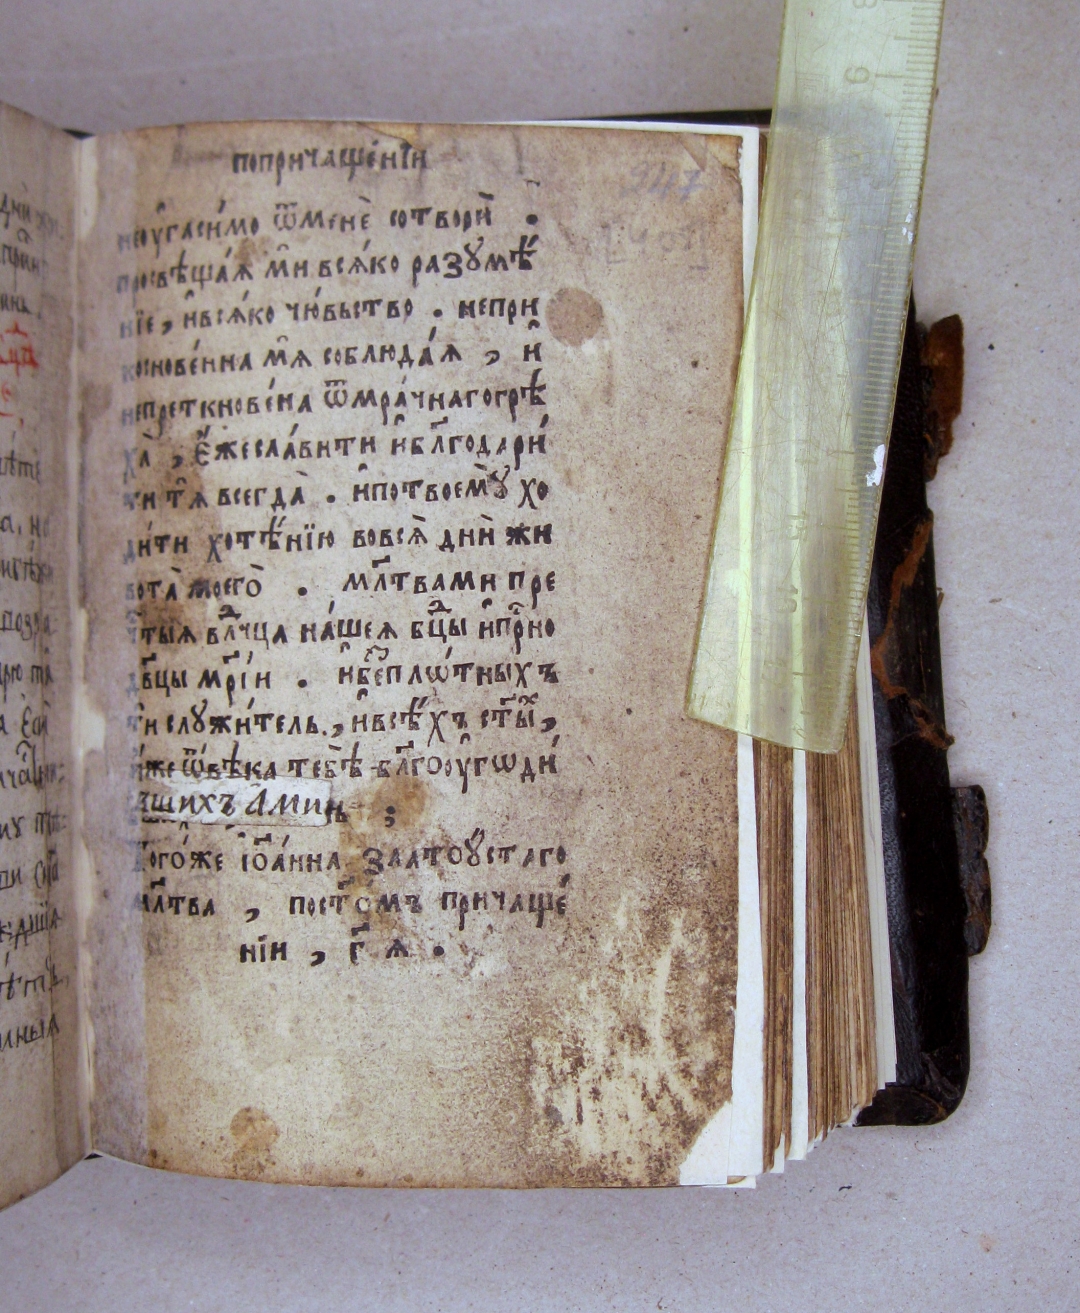 попричаще́нїи
247
[401]
неоу҆гаси́мо ѿменѐ сотворѝ .
просвѣща́ѧ мѝ всѧ́ко разꙋмѣ́
нїе , и҆всѧ́ко чю́вьство . непри
косновє́нна мѧ̀ соблюда́ѧ , и҆
непреткнове́на ѿмра́чнагогрѣ
ха̀ , є҆́жесла́вити и҆бл҃годари́
ти тѧ̀ всегда̀ . и҆потвоемꙋ̀ хо
ди́ти хотѣ́нїю вовсѧ̀ днѝ жи
вота̀ моегѡ̀ . мл҃твами пре
чⷭ҇тыѧ влⷣчца на́шеѧ бцⷣы и҆прⷭ҇но
дв҃цы мр҃і́и . и҆безⸯпло́тныхъ
тѝ слꙋжи́тель , и҆всѣ́хъ ст҃ы́хъ ,
и҆́же ѿвѣ́ка тебѣ̀ бл҃гооу҆годи́
вшихъ Аминь ;
Того́же іѡ҆а́нна златоꙋстаго
мл҃тва , пост҃о́мъ причаще́
нїи , г҃ ѧ .